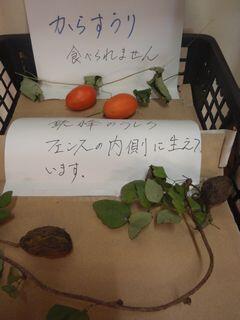 からすうり
食べられません
フェンスの内側に生えて
います。